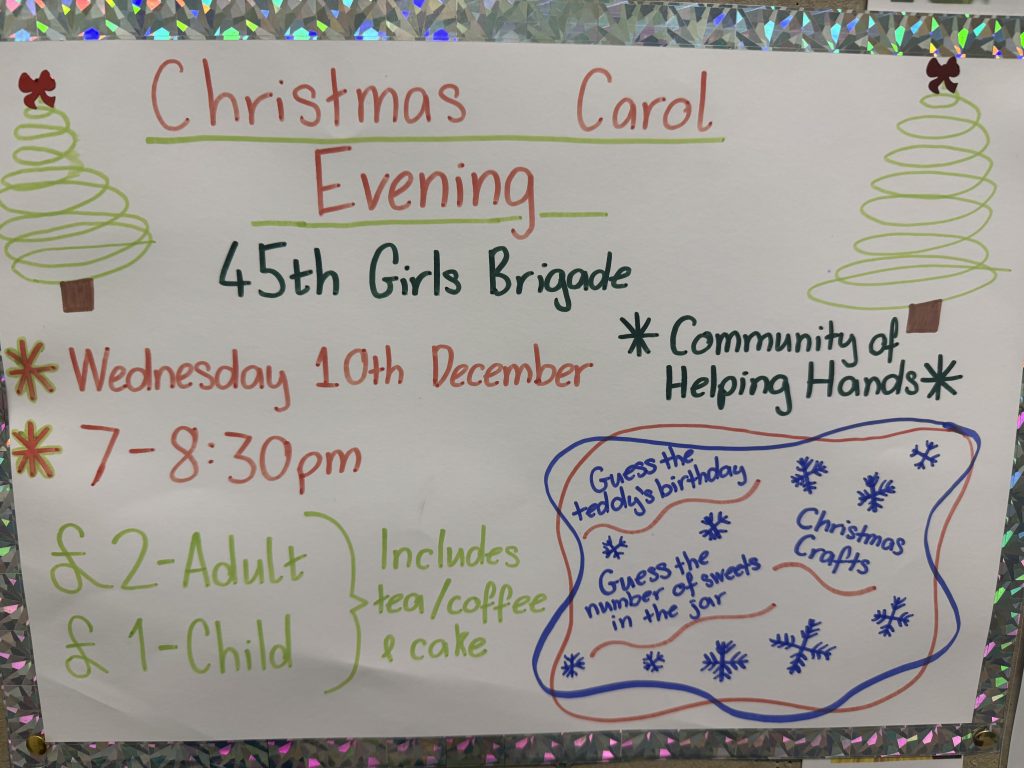 Christmas Carol
Evening
45th Girls Brigade
* Community of
Helping Hands *
* Wednesday 10th December
* 7-8:30pm
£2-Adult
£1-Child
Includes
tea/coffee
& cake
Guess the
teddy's birthday
Christmas
Crafts
Guess the
number of sweets
in the jar